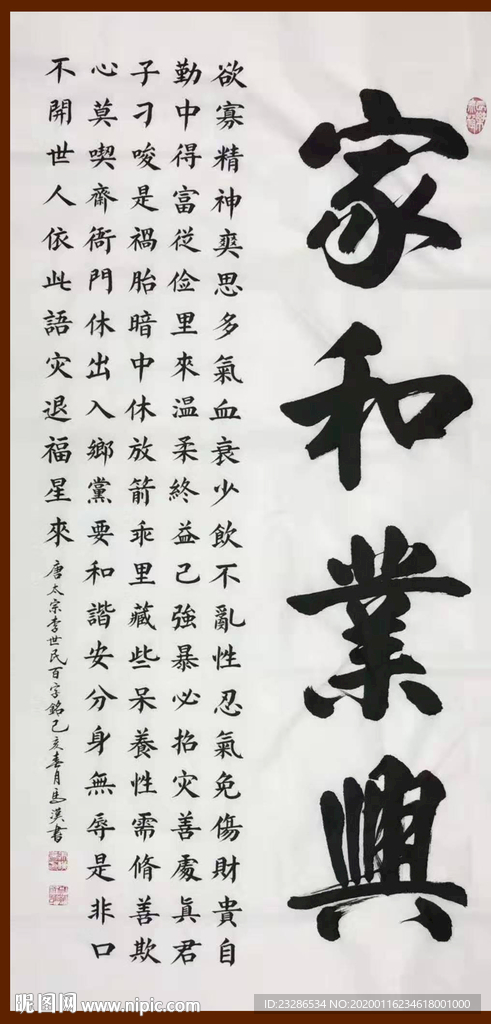 家和業興
欲寡精神爽思多氣血衰少飲不亂性忍氣免傷財貴自
勤中得富從儉里來温柔終益己強暴必招灾善處真君
子刁唆是禍胎暗中休放箭乖里藏些呆養性需脩善欺
心莫喫齋衙門休出入鄉黨要和諧安分身無辱是非口
不開世人依此語灾退福星來
唐太宗李世民百字銘己亥春月馬漢書
昵图网 www.nipic.com
ID:23286534 NO:20200116234618001000